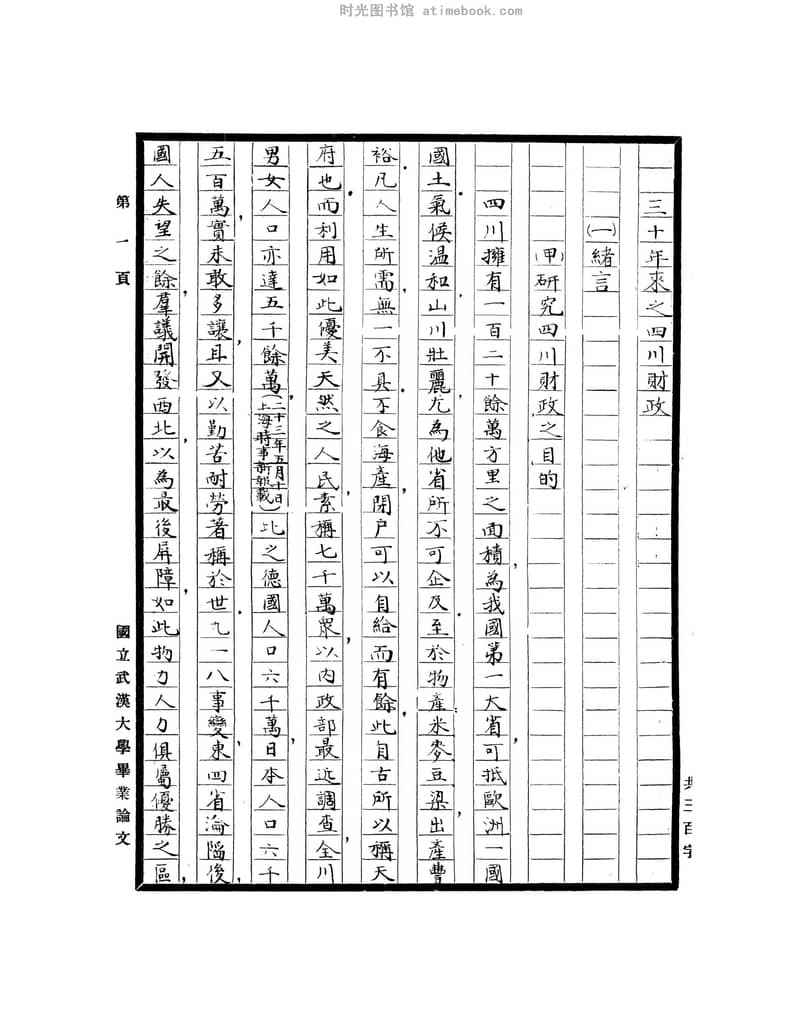 时光图书馆 atimebook.com
共三百字
三十年來之四川財政
(一)緒言
(甲)研究四川財政之目的
四川擁有一百二十餘萬方里之面積，為我國第一大省，可抵歐洲一國
國土。氣候溫和，山川壯麗，尤為他省所不可企及。至於物產，米麥豆梁，出產豐
裕。凡人生所需，無一不具。不食海產，閉户可以自給而有餘，此自古所以稱天
府也。而利用如此優美天然之人民，素稱七千萬眾，以内政部最近調查，全川
男女人口亦達五千餘萬，(二十三年五月十日上海時事新報載)此之德國人口六千萬，日本人口六千
五百萬，實未敢多讓耳。又以勤苦耐勞著稱於世。九一八事變，東四省淪陷後，
國人失望之餘，羣議開發西北，以為最後屏障，如此物力人力俱屬優勝之區，
第一頁
國立武漢大學畢業論文